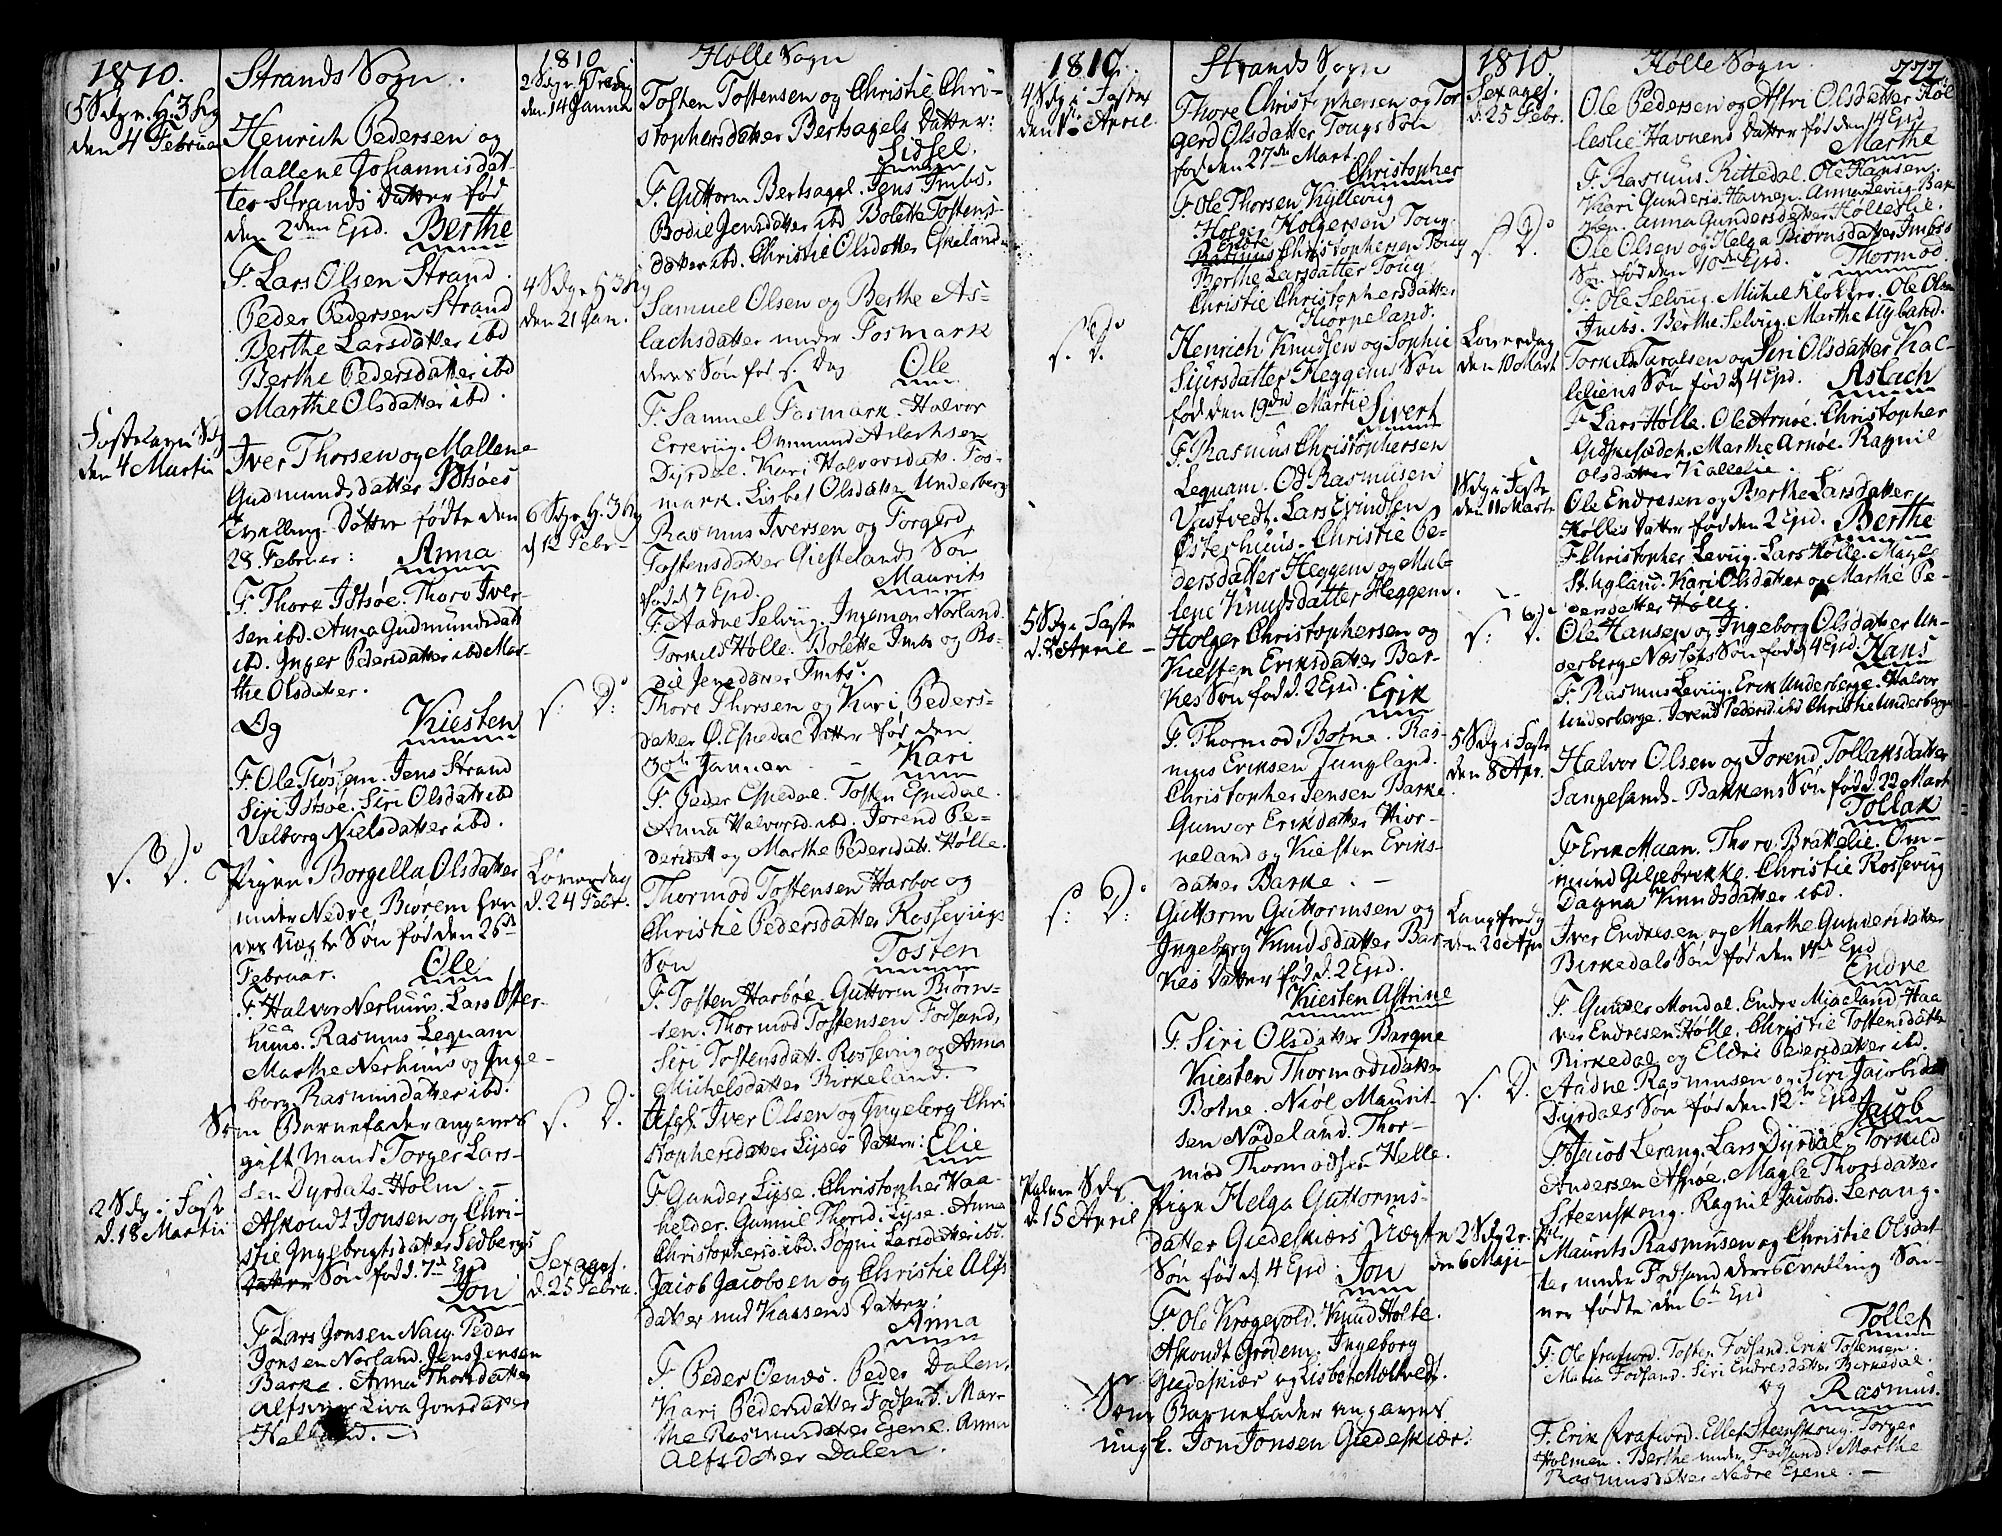 1810.
Strands Sogn.
5 Sdg. e. H. 3 Kg
den 4 Februar
Henrich Pedersen og
Mallene Johannisdat-
ter Strands Datter fød
den 2den Ejd. Berthe
F. Lars Olsen Strand.
Peder Pedersen Strand
Berthe Larsdatter ibd
Berthe Pedersdatter ibd
Marthe Olsdatter ibd.
Fastelavn Sdg
den 4 Martii
Iver Thorsen og Mallene
Gudmundsdatter Idsøes
Tvilling Døttre fødte den
28 Februar: Anna
F. Thore Idsøe. Thore Iver-
sen ibd. Anna Gudmundsdatt
ibd. Inger Pedersdatter ibd Mar-
the Olsdatter.
Og Kiesten
F. Ole Jens Strand
Siri Idsøe. Siri Olsdatt ibd
Valborg Nielsdatter ibd.
s. D.
Pigen Borgilla Olsdatter
under Nedre Biørem hen
des Uægte Søn fød den 26de
Februar. Ole
F. Halvor Nerhuus. Lars Øster-
huus. Rasmus Lequam
Marthe Nerhuus og Inge-
borg Rasmusdatter ibd.
Som Barnefader angaves
gift Mand Torger Lars-
sen Dyrdals-Holm.
2 Sdg i Faste
d. 18 Martii
Askoudt Jonsen og Chri-
stie Ingebrigtsdatter Sedbergs
Søn fød d. 7de Ejd
Jon
F. Lars Jonsen Naug. Peder
Jonsen Norland. Jens Jensen
Barke. Anna Thorsdatter
Alfsnes Liva Jonsdatter
Helland.
1810
Hølle Sogn
2 Sdg. e. Tredg
den 14 Janua
Tosten Tostensen og Christie Chri-
stophersdatter Bersagels Datter:
Sidsel.
F. Guttorm Bersaggel. Jens Imbs.
Bodil Jensdatter ibd. Bolette Tostens-
datter ibd. Christie Olsdatter Eskeland
4 Sdg. e. H 3 Kg
den 21 Jan.
Samuel Olsen og Berthe As-
lachsdatter under Fosmark
deres Søn fød s. Dag Ole
F. Samuel Fosmark. Halvor
Erreviig. Ommund Aslachsen
Dyrdal. Kari Halvorsdatt. Fos-
mark. Lisbet Olsdatter Underberg
6 Sdg. e. H. 3 Kg
d. 12 Febr.
Rasmus Iversen og Torgerd
Tostensdatter Giestelands Søn
fød d 7 Ejd. Maurits
F. Aadne Selviig. Ingemon Norland.
Torkild Hølle. Bolette Imbs og Bo-
dil Jensdatter Imbs.
s. D.
Thore Thorsen og Kari Peders-
datter Ø. Espedal Datter fød den
30te Januar Kari
F. Peder Espedal. Tosten Espedal.
Anna Halvorsd. ibd. Jorend Pe-
dersdatt og Marthe Pedersdatt. Hølle.
Løverdag
d. 24 Febr.
Thormod Tostensen Harboe og
Christie Pedersdatter Rosseviigs
Søn Tosten
F. Tosten Harbøe. Guttorm Biørn-
sen. Thormod Tostensen Fodsand,
Siri Tostensdatt. Rosseviig og Anna
Michelsdatter Birkeland.
s. D.
Afgf. Iver Olsen og Ingeborg Chri
stophersdatter Lyses Datter: Elie
F. Gunder Lyse. Christopher Haa-
helder. Gunnil Thorsd. Lyse. Anna
Christophersd. ibd. Sogni Larsdatter ibd.
Sexages.
d. 25 Febru.
Jacob Jacobsen og Christie Alfs
datter under Kaasens Datter:
Anna
F. Peder Oenæs. Peder Dalen.
Kari Pedersdatter Fodsand. Mar-
the Rasmusdatter Ejene. Anna
Alfsdatter Dalen.
1810.
Strands Sogn
4 Sdg i Fasten
den 1te April.
Thore Christophersen og Tor
gerd Olsdatter Tougs Søn
fød den 27de Mart.
Christopher
F. Ole Thorsen Kylleviig
Holger Holgersen Toug.
Endre
Rasmus Christophersen Toug
Berthe Larsdatter Toug
Christie Christophersdatter
Hiørpeland.
s. D.
Henrich Knudsen og Sophie
Siursdatter Heggems Søn
fød den 19de Martie Sivert
F. Rasmus Christophersen
Lequam. Od Rasmusen
Vastvedt. Lars Evindsen
Østerhuus. Christie Pe-
dersdatter Heggem og Mal-
lene Knudsdatter Heggem.
5 Sdg. i Faste
d. 8 April
Holger Christophersen og
Kiesten Eriksdatter Bar-
kes Søn fød d. 2 Ejd. Erik
F. Thormod Botne. Ras-
mus Eriksen Tungland.
Christopher Jensen Barke
Gunvor Eriksdatter Hior-
peland og Kiesten Eriks-
datter Barke.
s. D.
Guttorm Guttormsen og
Ingeborg Knudsdatter Bar-
kes Datter fød d. 2 Ejd.
Kiesten Astrine
F. Siri Olsdatter Barque
Kiesten Thormodsdatter
Botne. Niøl Maurit-
sen Nødeland. Thor-
mod Thormodsen Helle.
Palme Sdg
d. 15 April
Pigen Helga Guttorms-
datter Giedeskiærs Uægte
Søn fød d. 4 Ejd. Jon
F. Ole Krogevold. Knud Holte.
Askoudt Grødem. Ingeborg
Giedeskiær og Lisbet Moltvedt.
Som Barnefader angaves
ungk. Jon Jonsen Giedeskiær.
1810
Hølle Sogn.
777
Sexages.
d. 25 Febr.
Ole Pedersen og Astri Olsdatter Høl
leslie Havnens Datter fød den 14 Ejd
Marthe
F. Rasmus Rittedal. Ole Hansen.
Kari Gundersd. Havnen. Anna Leviig-Bak
ken. Anna Gundersdatter Hølleslie.
s. D.
Ole Olsen og Helga Biørnsdatter Imbs
Søn fød den 10de Ejd. Thormod
F. Ole Selviig. Michel Kløkves. Ole Olsen
Imbs. Berthe Selviig. Marthe Nyland.
Løverdag
den 10 Mart
Torkild Taralsen og Siri Olsdatter Kal-
leliens Søn fød d. 4 Ejd. Aslach
F. Lars Hølle. Ole Arnøe. Christopher
Marthe Arnøe. Ragnil
Olsdatter Kallelie.
1 Sdg. i Faste
den 11 Marti
Ole Endresen og Berthe Larsdatter
Hølles Datter fød den 2 Ejd. Berthe
F. Christopher Leviig. Lars Hølle. Magle
Kari Olsdatter og Marthe Pe-
dersdatter Hølle.
s. D.
Ole Hansen og Ingeborg Olsdatter Un-
derberg-Næssets Søn fød d. 4 Ejd. Hans
F. Rasmus Leviig. Erik Underberge. Halvor
Underberge. Jorend Pedersd. ibd Christie Underberge
5 Sdg i Faste
den 8 Apr.
Halvor Olsen og Jorend Tollaksdatter
Sangesands-Bakkens Søn fød d. 22 Mart
Tollak
F. Erik Maan. Thore Brattelie. Om-
mund Giljebrekke. Christie Rosseviig
Dagna Knudsdatter ibd.
Langfredg
den 20 Apr
Iver Endresen og Marthe Gundersdatter
Birkedals Søn fød den 14de Ejd
Endre
F. Gunder Mondal. Endre Migeland. Haa
ver Endresen Hølle. Christie Tostensdatter
Birkedal og Eldri Pedersdatter ibd.
s. D.
Aadne Rasmusen og Siri Jacobsdatt
Dyrdals Søn fød den 12te Ejd Jacob
F. Jacob Lerang. Lars Dyrdal. Torkild
Andersen Askøe. Magle Thorsdatter
Steenskong. Ragnil Jacobsd. Lerang.
2 Sdg e. P.
den 6 Maji
Maurits Rasmusen og Christie Olsdat
ter under Fodsand deres Tvilling Søn-
ner fødte den 6te Ejd
Tollef
F. Ole Frafiord. Tosten Fodsand. Erik Tostensen.
Maria Fodsand. Siri Endresdatter Birkedal.
og Rasmus.
F. Erik Frafiord. Ellef Steenskong. Torger
Holmen. Berthe under Fodsand. Marthe
Rasmusdatter Nedre Ejene.